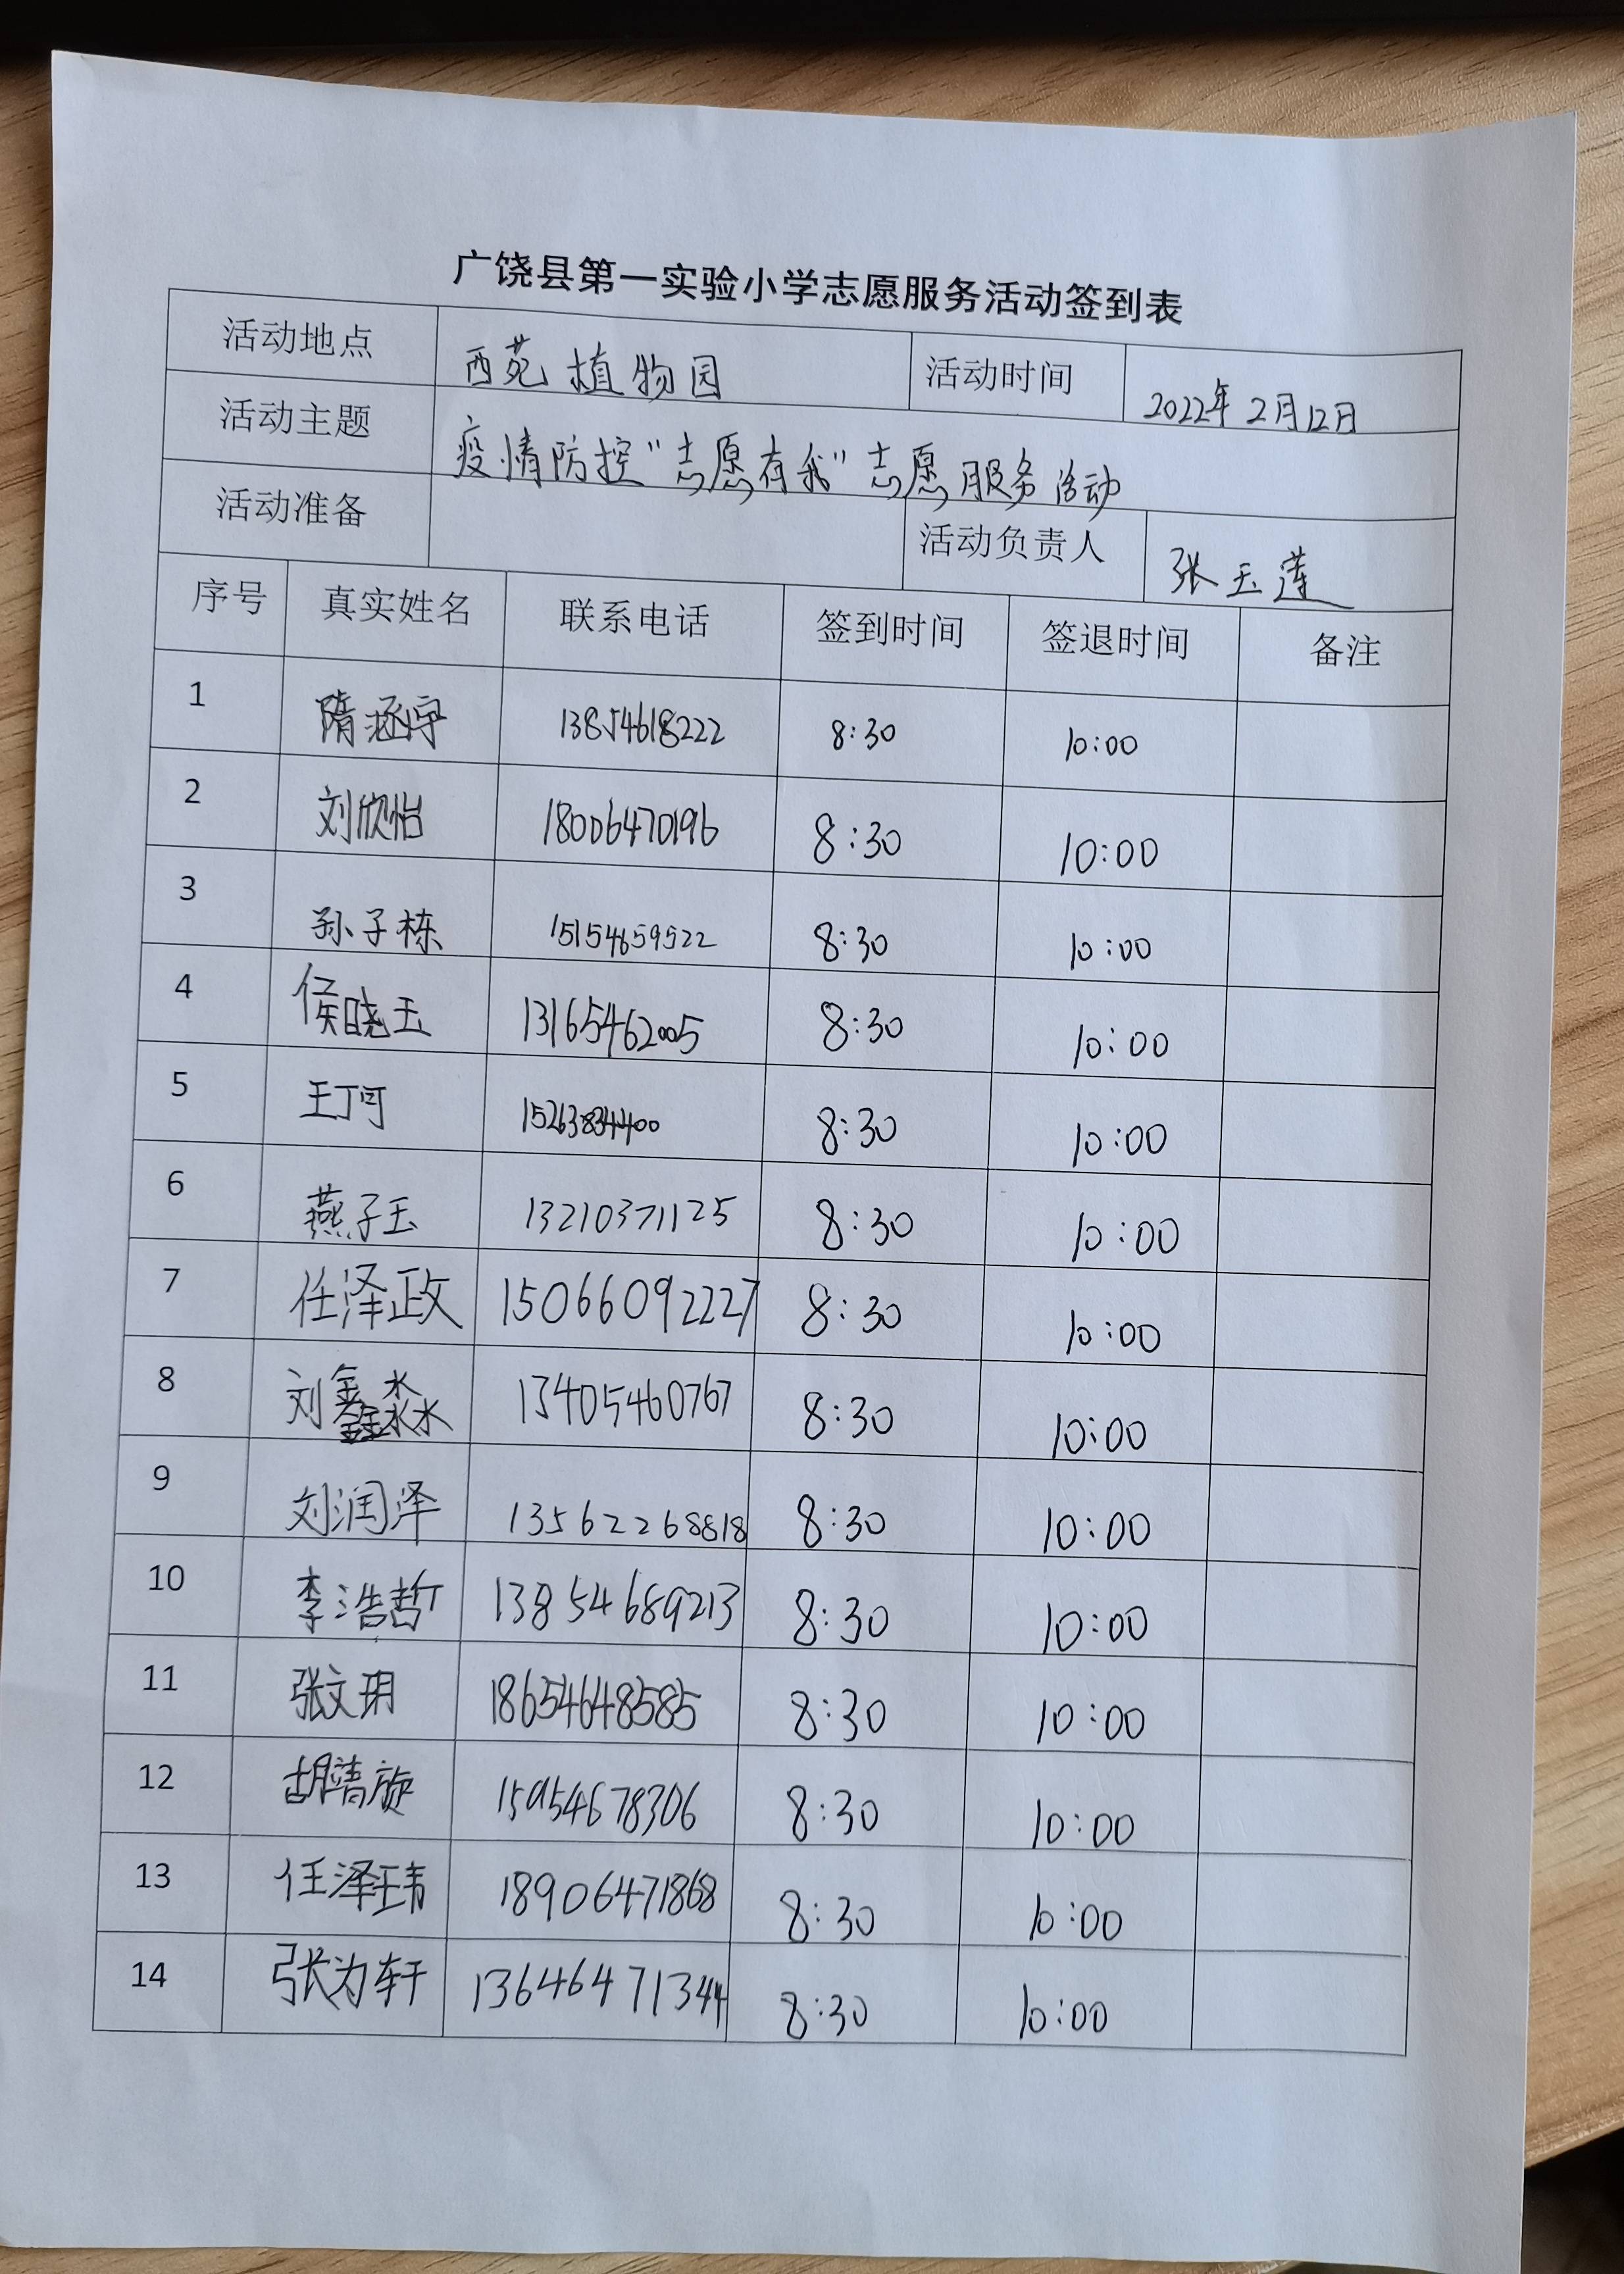 广饶县第一实验小学志愿服务活动签到表
活动地点 西苑植物园 活动时间 2022年2月12日
活动主题 疫情防控"志愿有我"志愿服务活动
活动准备 活动负责人 张玉莲
序号 真实姓名 联系电话 签到时间 签退时间 备注
1 隋涵宇 13854618222 8:30 10:00
2 刘欣怡 18006470196 8:30 10:00
3 孙子栋 15154659522 8:30 10:00
4 侯晓玉 13165462005 8:30 10:00
5 王丁可 15263834400 8:30 10:00
6 燕子玉 13210371125 8:30 10:00
7 任泽政 15066092227 8:30 10:00
8 刘鑫淼 13405460767 8:30 10:00
9 刘润泽 13562268818 8:30 10:00
10 李浩哲 13854689213 8:30 10:00
11 张文玥 18654648585 8:30 10:00
12 胡靖旋 15954678306 8:30 10:00
13 任泽玮 18906471868 8:30 10:00
14 张为轩 13646471344 8:30 10:00